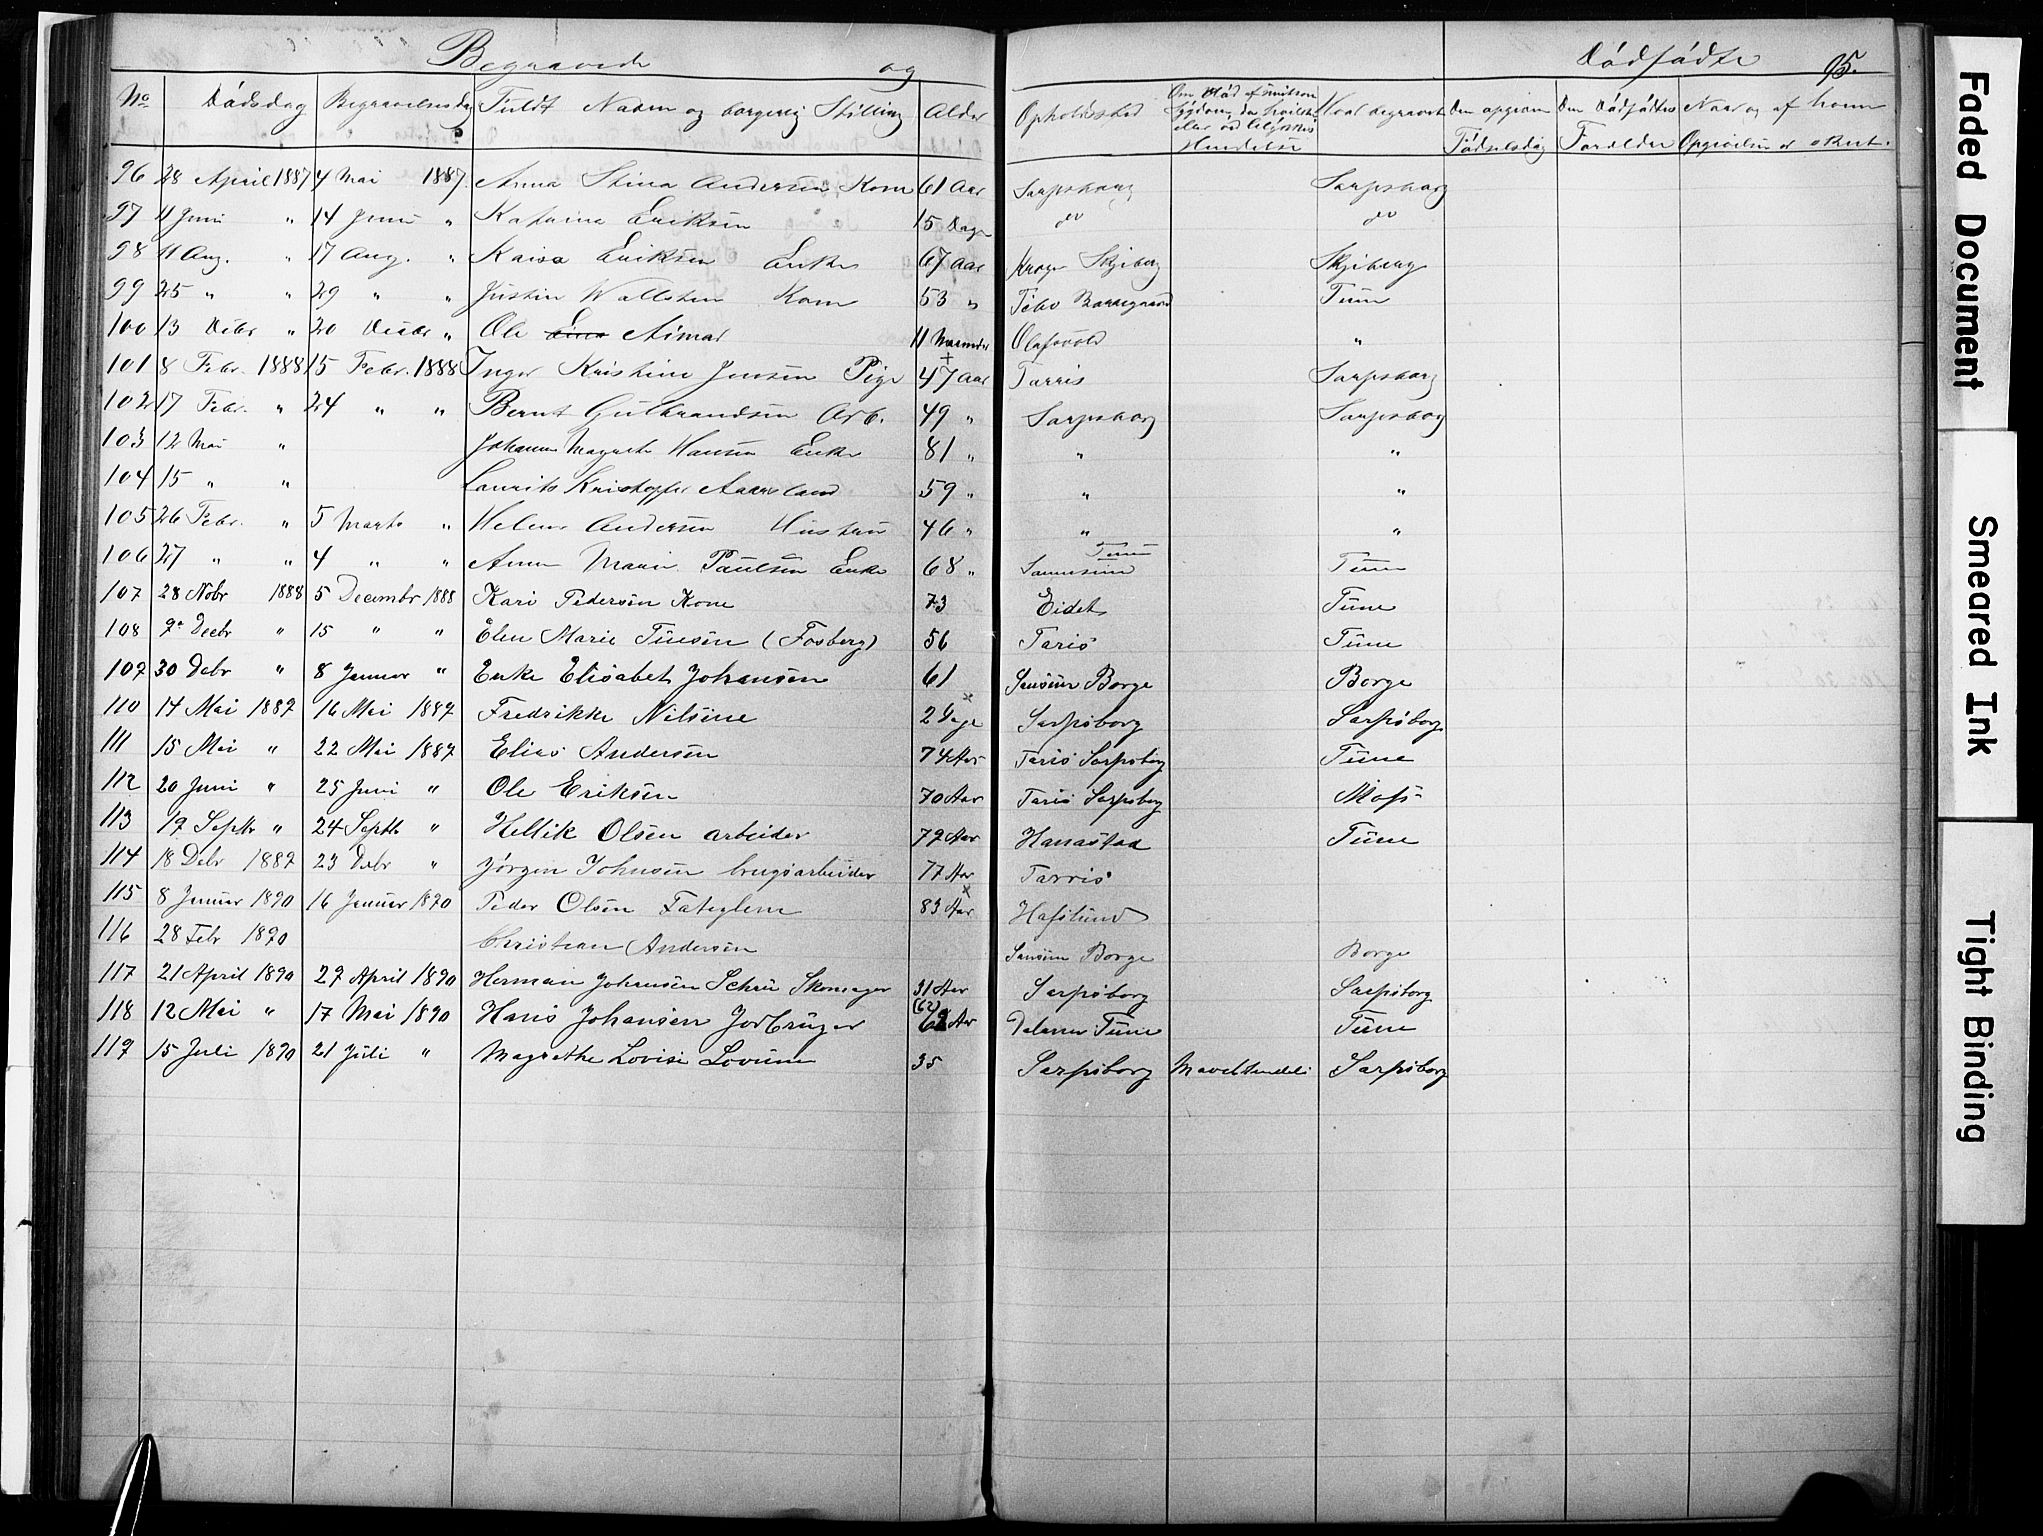 Begravede og Dødfødte 95.
No Dødsdag Begravelsesdag Fuldt Navn og borgerlig Stilling Alder Opholdssted Om Død af smitsom Sygdom, da hvilken eller ved Ulykkes Hendelse Hvor begravet Den opgivne Fødselsdag Den Dødfødtes Forældre Naar og af hvem Opgivelsen er skeet.
96 28 April 1887 4 Mai 1887. Anna Stina Andersen Kone 61 Aar Sarpsborg Sarpsborg
97 11 Juni " 14 Juni " Katrina Eriksen 15 Dage do do
98 11 Aug. " 17 Aug. " Kaisa Eriksen Enke 67 Aar Skjeberg Skjeberg
99 25 " " 29 " " Justin Wallsten Kone 53 " Tune
100 13 Debr " 20 Debr " Ole Aimar 11 Maaneder Olafsvold "
101 8 Febr. 1888 15 Febr. 1888 Inger Kristine Jensen Pige 47 Aar Tarris Sarpsborg
102 17 Febr. " 24 " " Bernt Gulbrandsen Arb. 49 " Sarpsborg Sarpsborg
103 12 Mai " Johanne Magrethe Hansen Enke 81 " " "
104 15 " " Laurits Kristoffer Aaresland 59 " " "
105 26 Febr. " 5 Marts " Helene Andersen Hustru 46 " " "
106 27 " " 4 " " Anne Marie Paulsen Enke 68 " Sannesund Tune Tune
107 28 Nobr 1888 5 Decembr 1888 Kari Pedersen Kone 73 Eidet Tune
108 9de Decbr " 15 " " Elen Marie Tuesen (Fosberg) 56 Taris Tune
109 30 Debr " 8 Januar " Enke Elisabet Johansen 61 Sansun Borge Borge
110 14 Mai 1889 16 Mai 1889 Fredrikke Nilsine 2 Dage Sarpsborg Sarpsborg
111 15 Mai " 22 Mai 1889 Elias Andersen 74 Aar Taris Sarpsborg Tune
112 20 Juni " 25 Juni " Ole Eriksen 70 Aar Taris Sarpsborg Moss
113 19 Septbr " 24 Septbr " Hellik Olsen arbeider 79 Aar Hanastad Tune
114 18 Debr 1889 23 Debr " Jørgen Johnsen brugsarbeider 77 Aar Tarris
115 8 Januar 1890 16 Januar 1890 Peder Olsen Fateglem 83 Aar Hafslund
116 28 Febr 1890 Christian Andersen Sansun Borge Borge
117 21 April 1890 27 April 1890 Herman Johansen Schrei Skomager 31 Aar Sarpsborg Sarpsborg
118 12 Mai " 17 Mai 1890 Hans Johansen Jorbruger (62) 62 Aar Tune Tune
119 15 Juli 1890 21 Juli " Magrethe Lovise Lovum 35 Sarpsborg Sarpsborg
Faded Document
Smeared Ink
Tight Binding